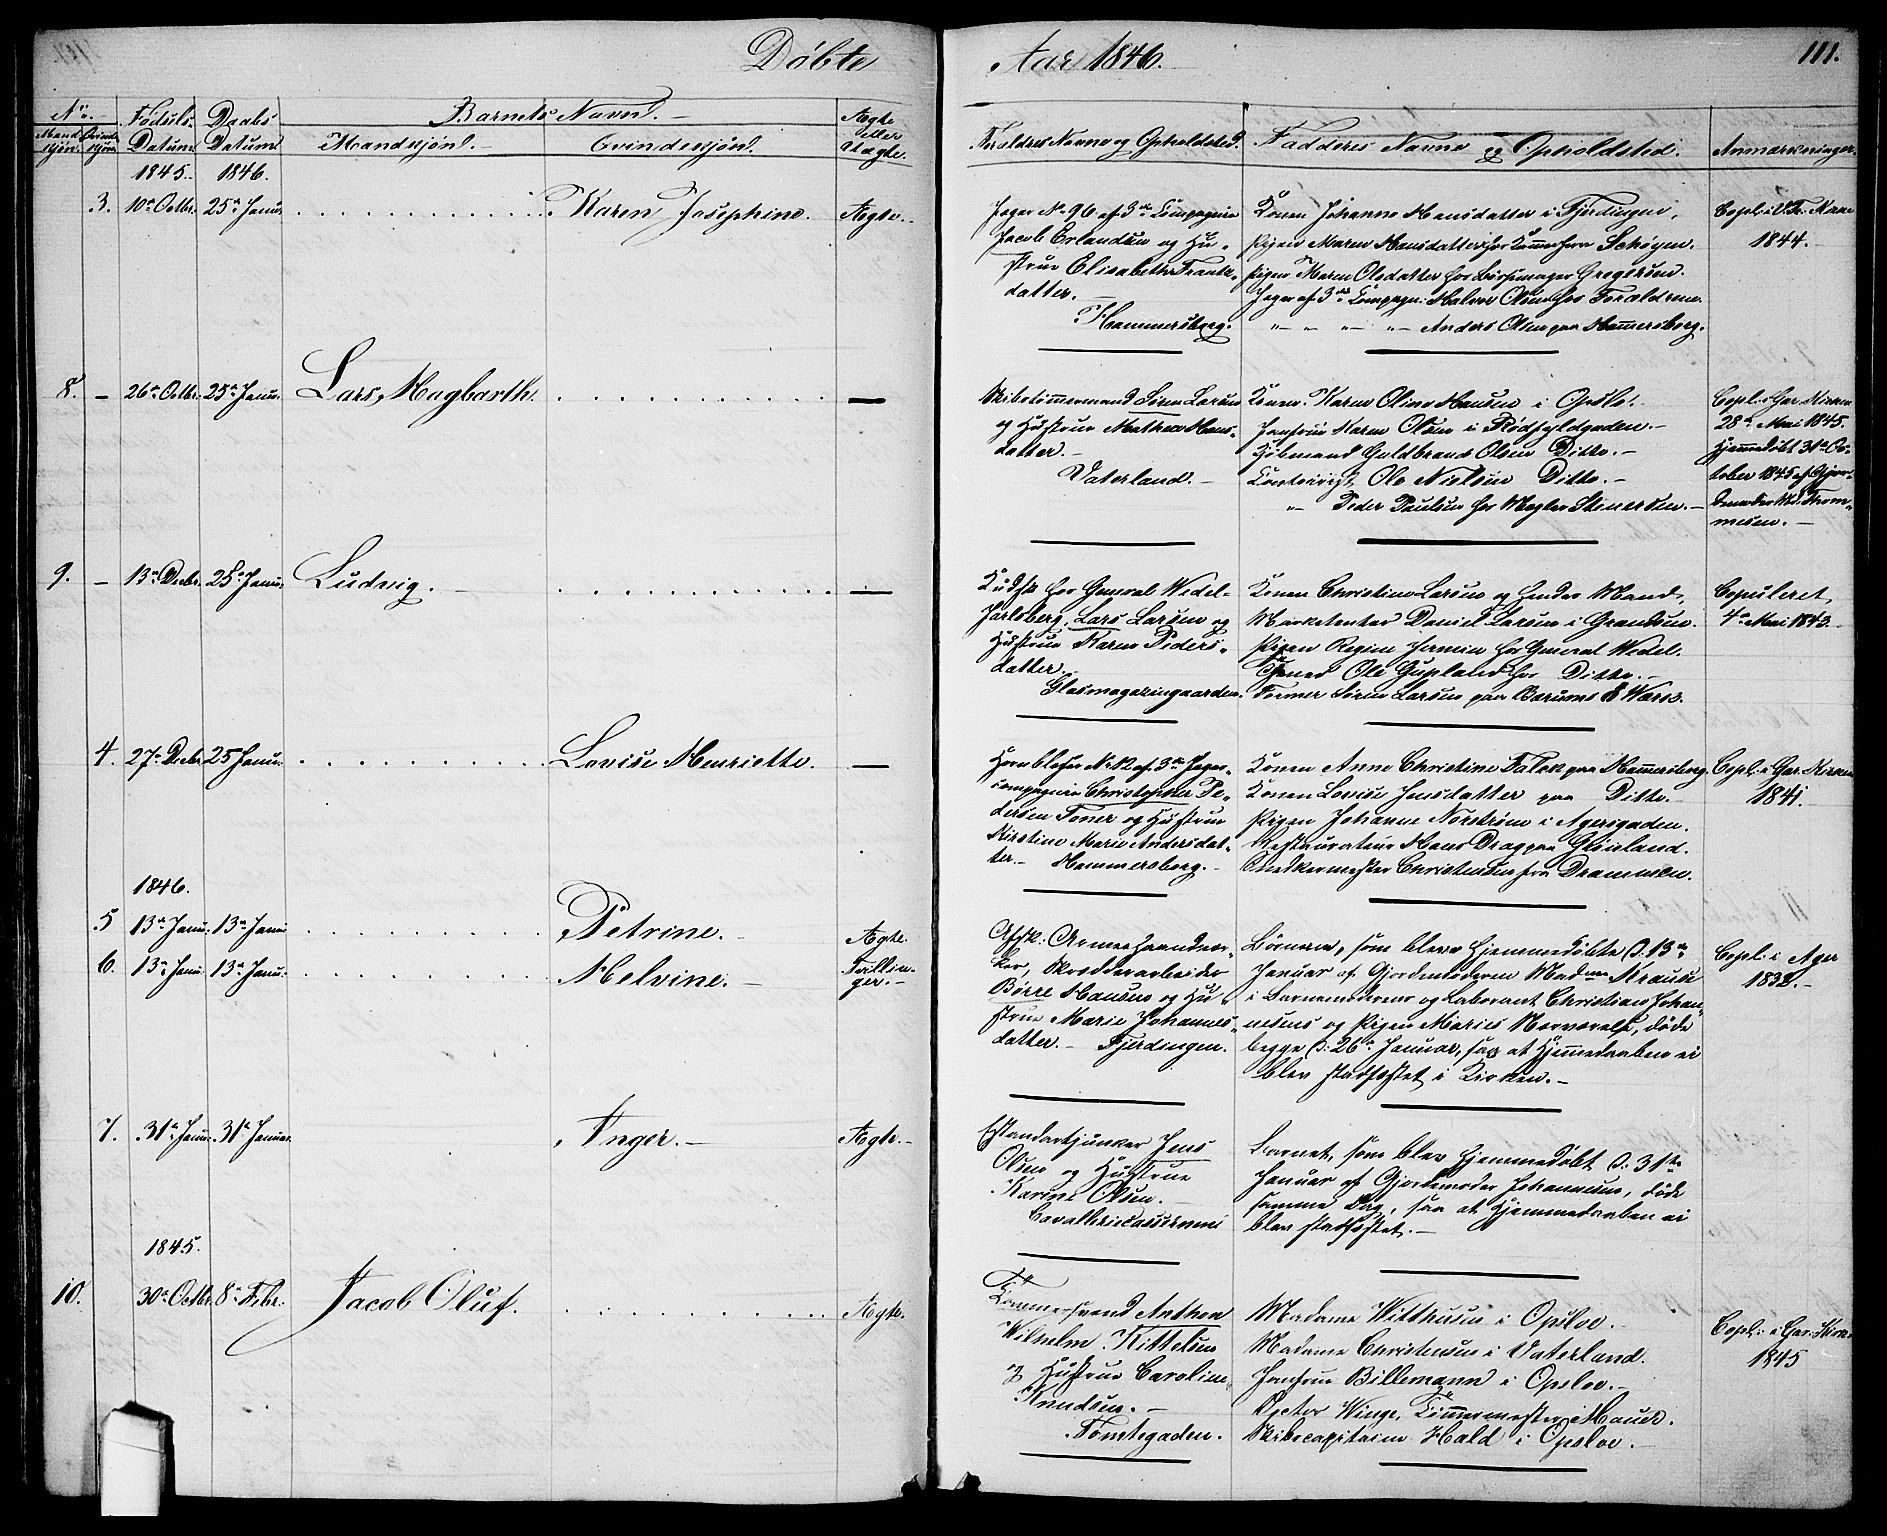 Döbte
Aar 1846.
111.
No.
Mandkjön.
Qvindekjön.
Födsels-Datum.
Daabs Datum.
Barnets Navn.
Mandkjön.
Qvindekjön.
Ægte eller Uægte.
Forældres Navne og Opholdsted.
Fadderes Navne og Opholdsted.
Anmærkninger.
1845. 1846.
3. 10de Octbr. 25de Janu. Karen Josephine. Ægte.
Jæger No 96 af 3die Compagnie
Jacob Erlandsen og Hu-
strue Elisabeth Frants-
datter.
Hammersborg.
Konen Johanne Hansdatter i Fjerdingen,
Pigen Maren Hansdatter hos Kammerherr Schøyen.
Pigen Maren Olsdatter hos Börsemager Gregersen.
Jæger af 3die Compagn: Halvor Olsen hos Forældrene.
" " " " Anders Olsen paa Hammersborg.
Copl. i V. Fr. Kirke
1844.
8. – 26de Octbr. 25de Janu. Lars Hagbarth. —
Skibstömmermand Sören Larsen
og Hustrue Mathea Hans-
datter.
Vaterland.
Konen Karen Oline Hansen i Opslo.
Jomfrue Karen Olsen i Rödfyldgaden.
Kjöbmand Guldbrand Olsen Ditto.
Contoirist Ole Nielsen Ditto.
" Peder Paulsen hos Mægler Stenersen.
Copl. i Gar. Kirken
28de Mai 1845.
Hjemmedöbt 31te Oc-
tober 1845 af Gjor-
demoder Md. Thom-
mesen.
9. – 13de Decbr. 25de Janu. Ludvig. —
Kudsk hos General Wedel-
Jarlsberg, Lars Larsen og
Hustrue Karen Peders-
datter.
Glasmagazingaarden.
Konen Christine Larsen og hendes Mand,
Marketenter Daniel Larsen i Grændsen.
Pigen Regine Jermin hos General Wedel.
Tjener Ole Gupland hos Ditto.
Former Sören Larsen paa Bærums Værk.
Copuleret
4de Mai 1843.
4. 27de Decbr. 25 Janu. Lovise Henriette. —
Hornblæser No 12 af 3die Jæger-
compagnie Christopher Pe-
dersen Toner og Hustrue
Kirstine Marie Andersdat-
ter. Hammersborg.
Konen Anne Christine Falck paa Hammersborg.
Konen Lovise Jensdatter paa Ditto.
Pigen Johanne Norström i Agersgaden.
Restaurateur Hans Drag paa Grönland.
Snedkermester Christensen fra Drammen.
Copl. i Gar. Kirken
1841.
1846.
5 13de Janu. 13de Janu. Petrine. Ægte.
6. 13de Janu. 13de Janu. Melvine. Tvillin-
ger.
Afsk: Armeehaandvær-
ker, Skrædderarbeider
Börre Hansen og Hu-
strue Marie Johannes-
datter. Fjerdingen.
Börnene, som bleve hjemmedöbte d. 13de
Januar af Gjordemoderen Madme Krause
i Barnemoderens og Laborant Christian Johan-
nesens og Pigen Maries Nærværelse, döde
begge d. 26de Januar, saa at Hjemmedaaben ei
blev stadfæstet i Kirken.
Copl. i Ager
1832.
7. 31te Janu. 31te Januar. Inger. Ægte.
Estandartjunker Jens
Olsen og Hustrue
Karine Olsen.
Cavallericasernen
Barnet, som blev hjemmedöbt d. 31te
Januar af Gjordemoder Johannesen, döde
samme Dag, saa at Hjemmedaaben ei
blev stadfæstet.
1845.
10. 30te Octbr. 8de Febr. Jacob Oluf. Ægte.
Tömmersvend Anthon
Wilhelm Kittelsen
og Hustrue Caroline
Knudsen.
Tomtegaden.
Madame Witthusen i Opsloe.
Madame Christensen i Vaterland.
Jomfrue Billemann i Opsloe.
Doctor Winge, Tömmermester Hauer.
Skibscapitain Hald i Opsloe.
Copl. i Gar. Kirk.
1845